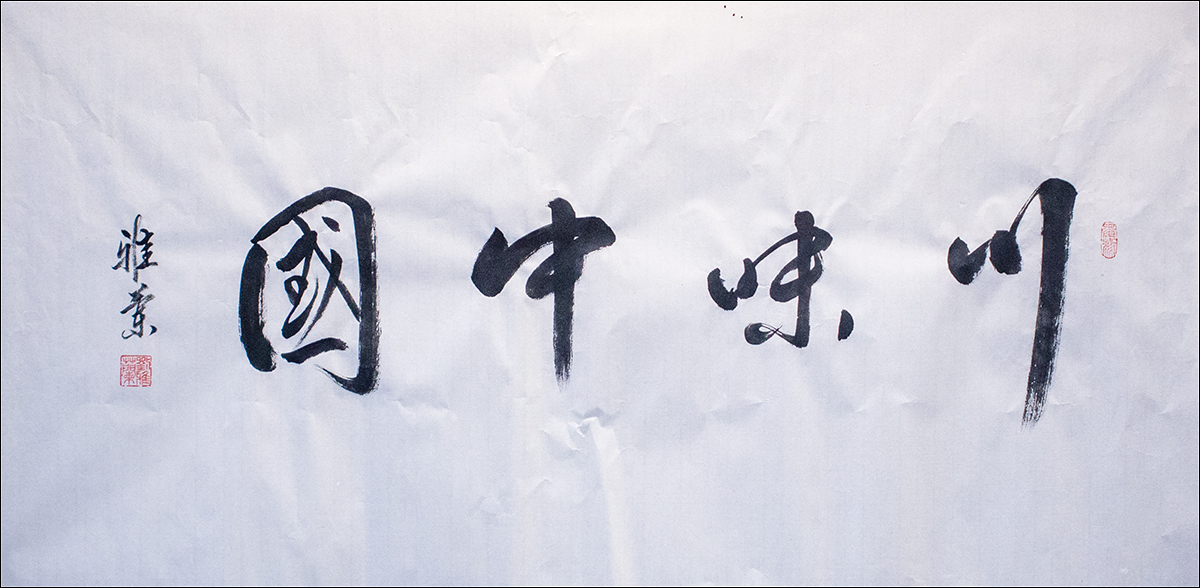 川味中國
雅業